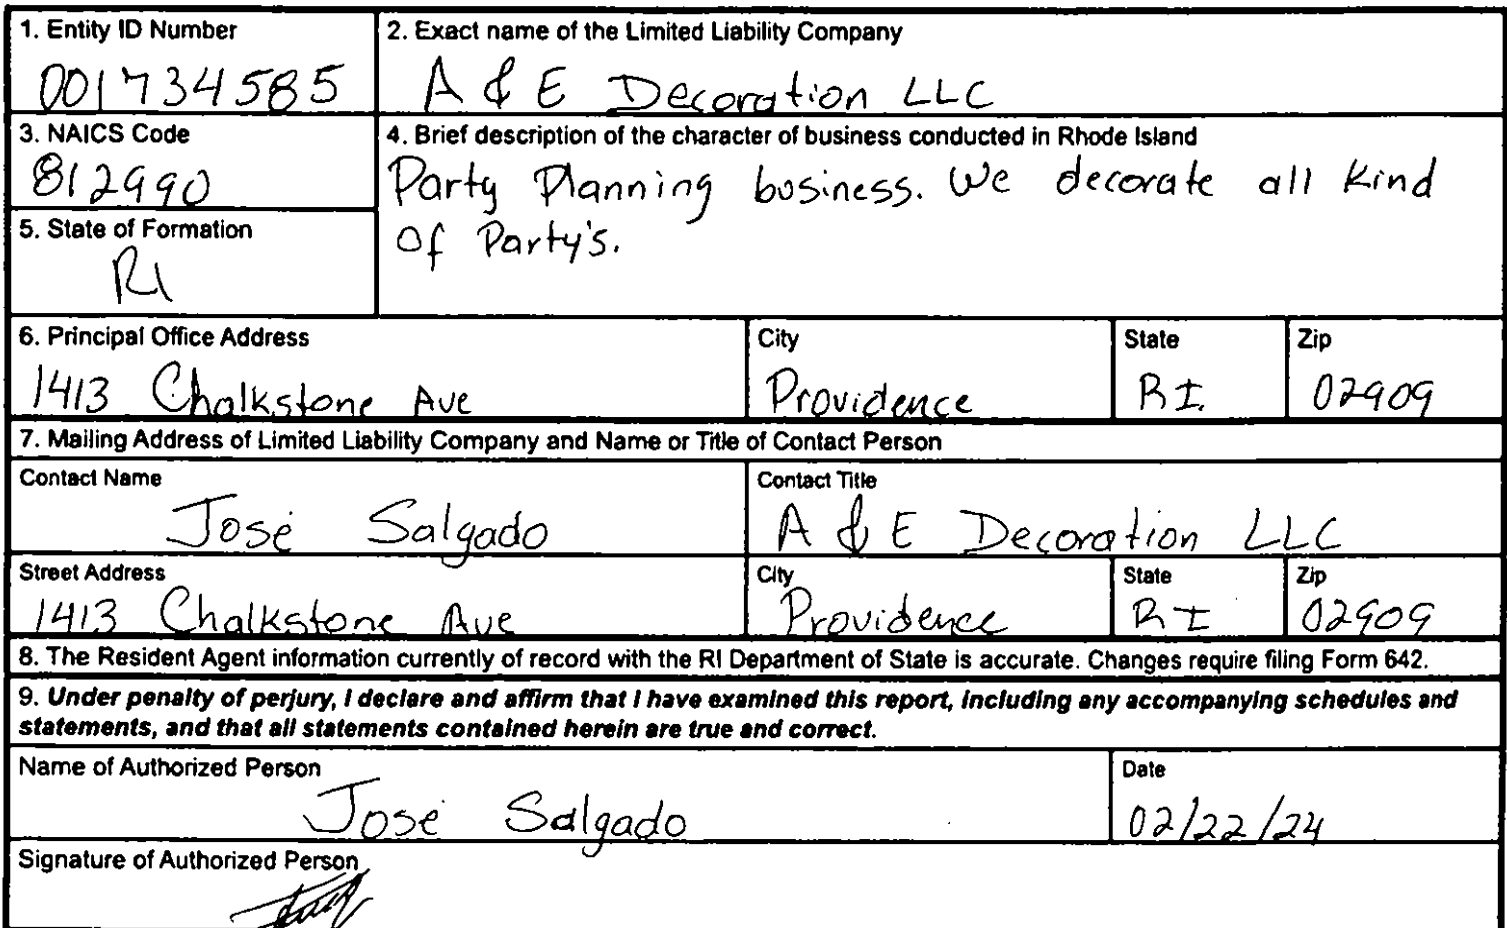 1. Entity ID Number
001734585
2. Exact name of the Limited Liability Company
A & E Decoration LLC
3. NAICS Code
812990
4. Brief description of the character of business conducted in Rhode Island
Party Planning business. We decorate all kind
of Party's.
5. State of Formation
RI
6. Principal Office Address
1413 Chalkstone Ave
City
Providence
State
RI.
Zip
02909
7. Mailing Address of Limited Liability Company and Name or Title of Contact Person
Contact Name
José Salgado
Contact Title
A & E Decoration LLC
Street Address
1413 Chalkstone Ave
City
Providence
State
RI
Zip
02909
8. The Resident Agent information currently of record with the RI Department of State is accurate. Changes require filing Form 642.
9. Under penalty of perjury, I declare and affirm that I have examined this report, including any accompanying schedules and
statements, and that all statements contained herein are true and correct.
Name of Authorized Person
José Salgado
Date
02/22/24
Signature of Authorized Person